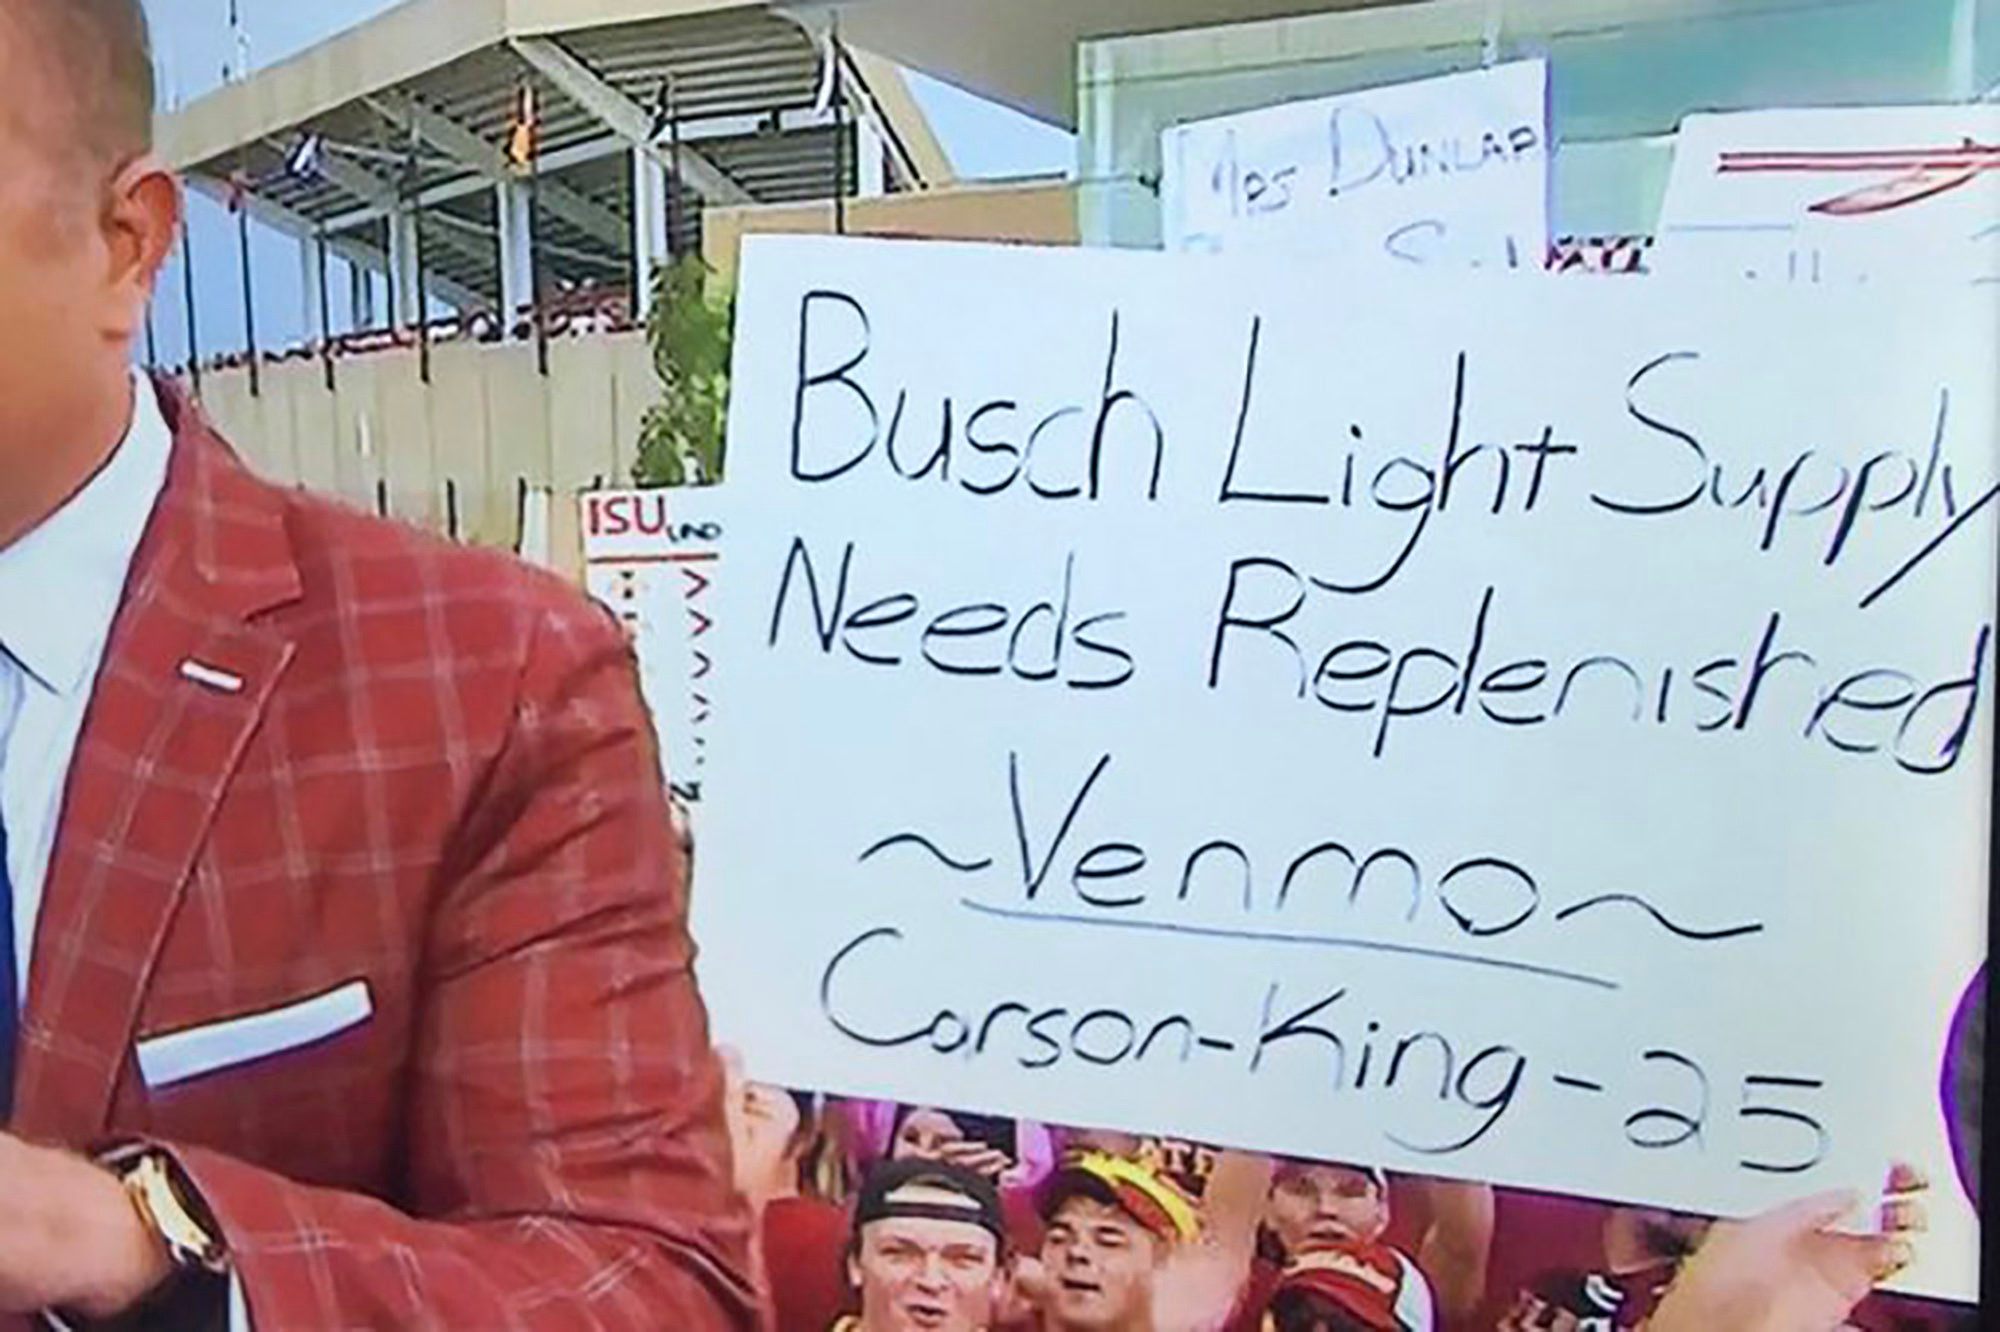 Mrs Dunlap
ISU
Busch Light Supply
Needs Replenished
~Venmo~
Carson-King-25